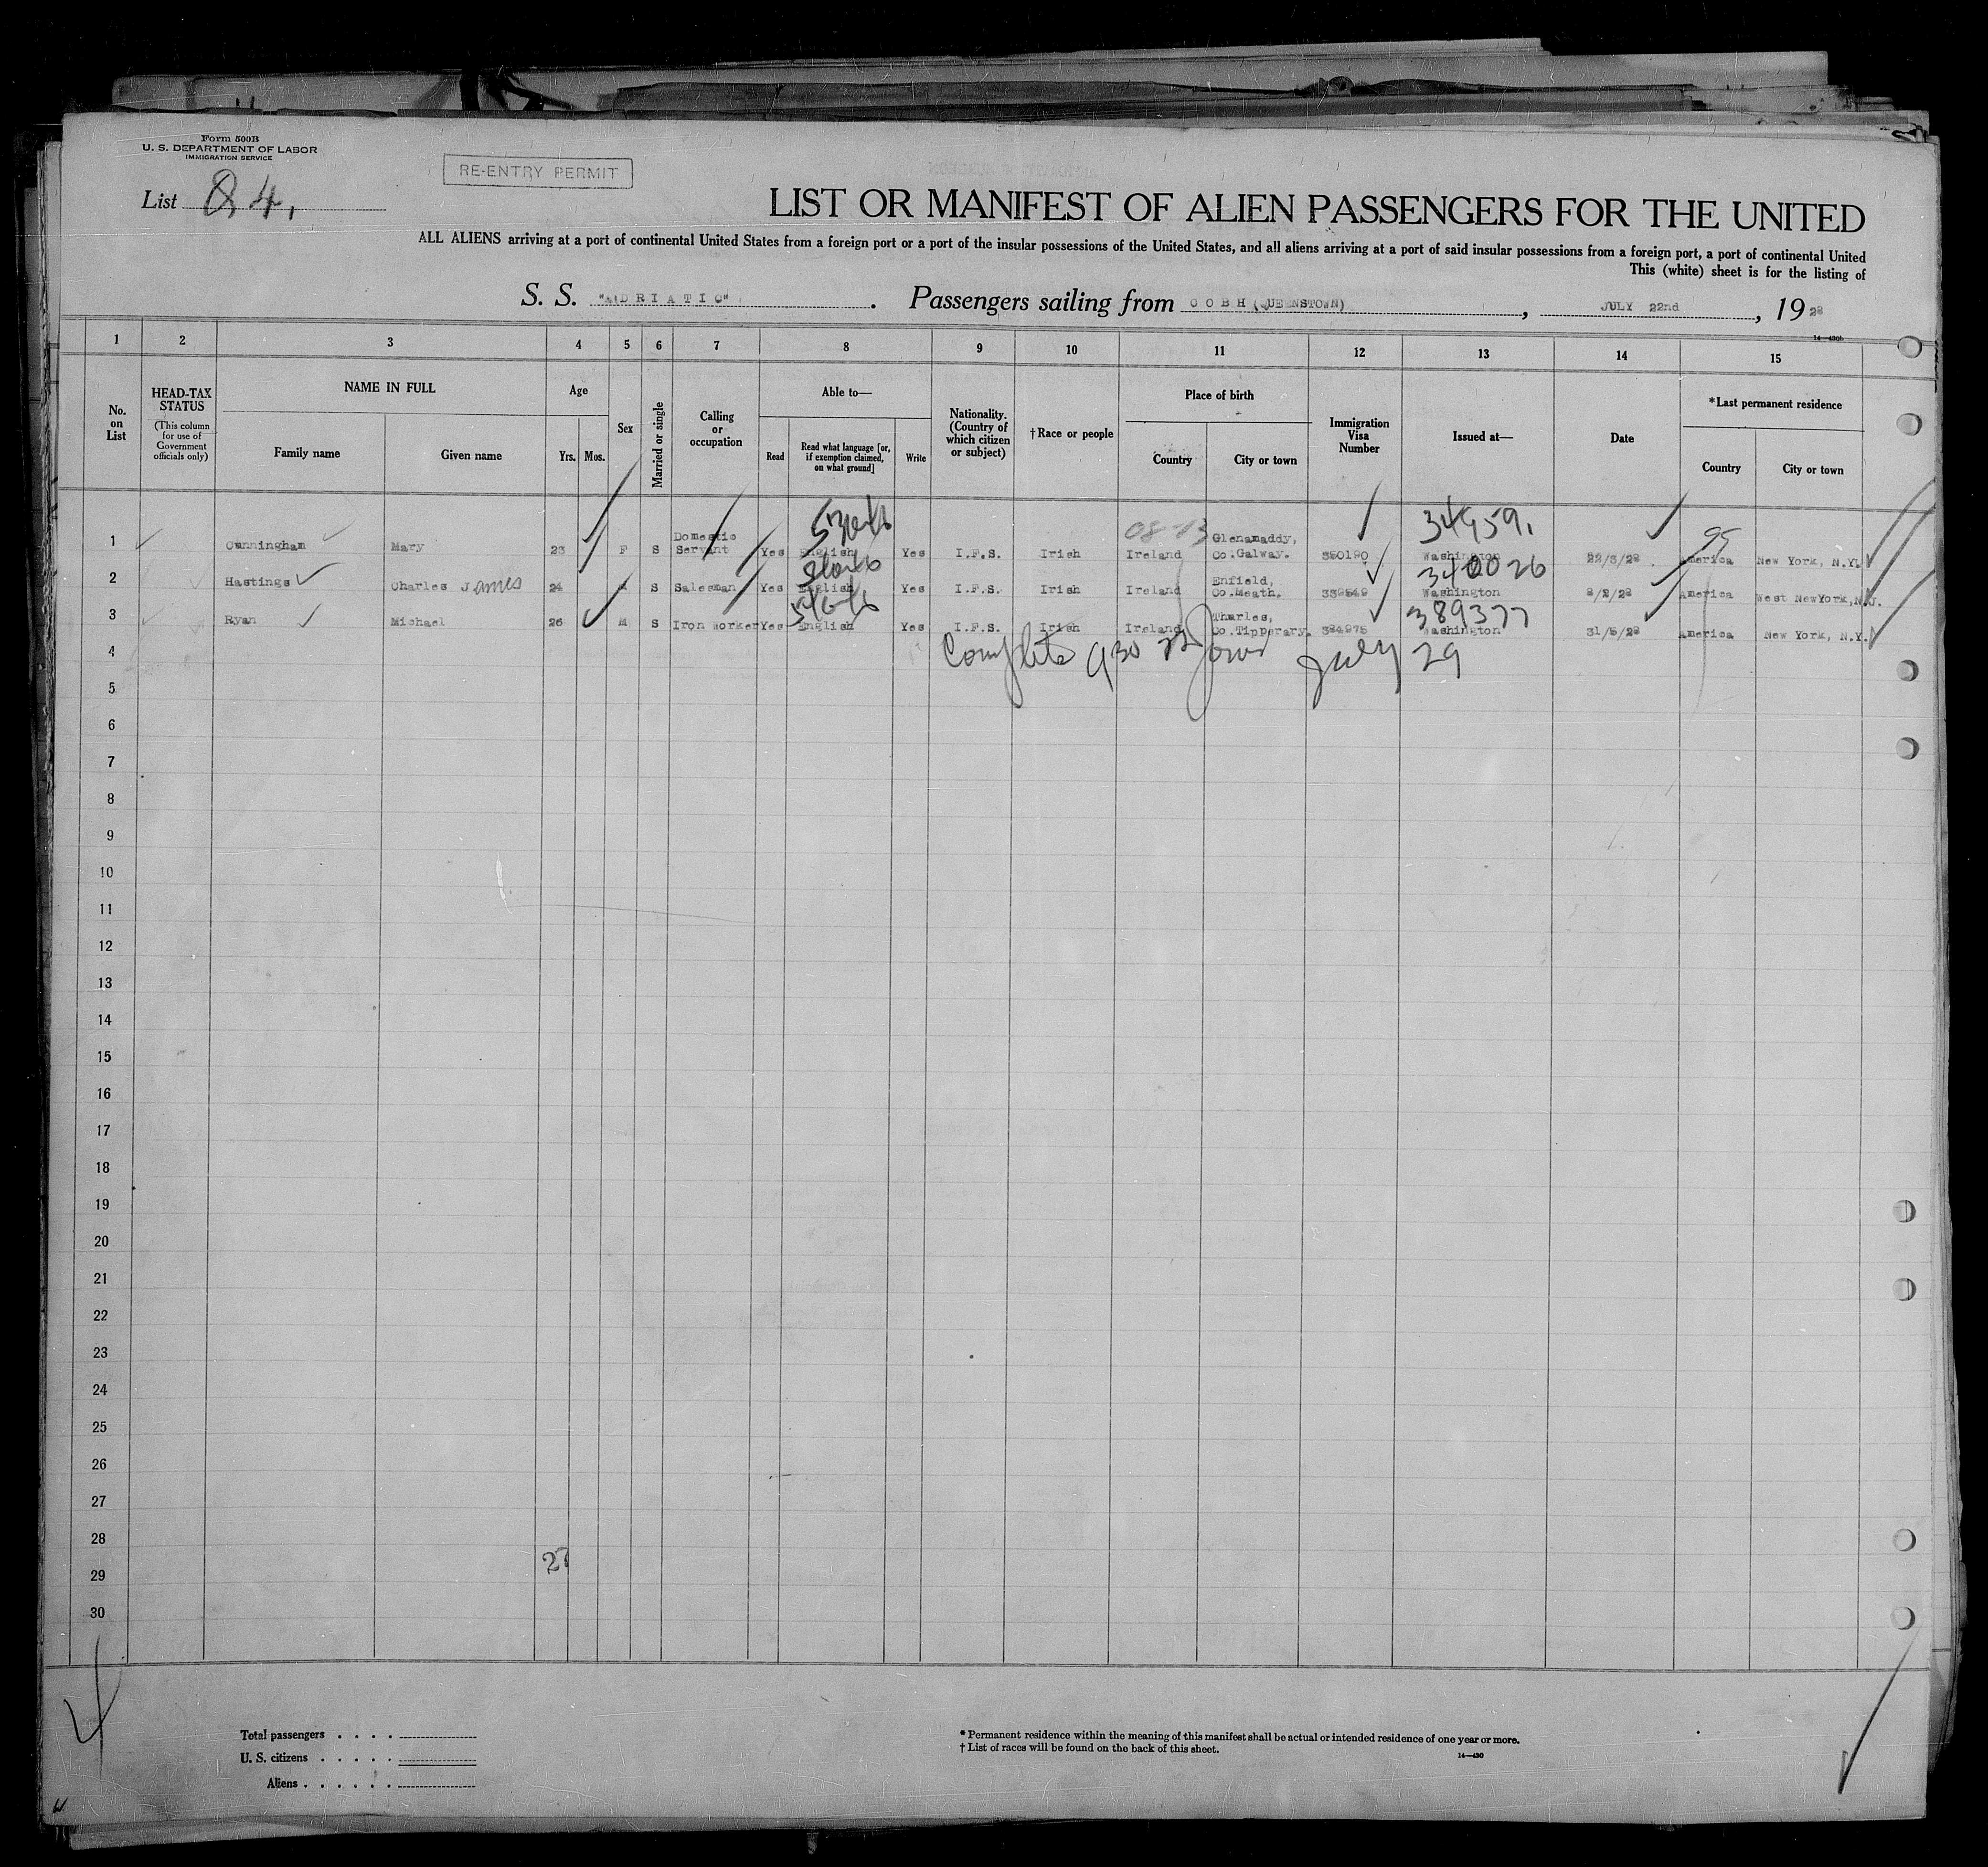 Form 500B
U. S. DEPARTMENT OF LABOR
IMMIGRATION SERVICE
RE-ENTRY PERMIT
List 4,
LIST OR MANIFEST OF ALIEN PASSENGERS FOR THE UNITED
ALL ALIENS arriving at a port of continental United States from a foreign port or a port of the insular possessions of the United States, and all aliens arriving at a port of said insular possessions from a foreign port, a port of continental United
This (white) sheet is for the listing of
S. S. "ADRIATIC". Passengers sailing from COBH (QUEENSTOWN), JULY 22nd, 1928
14—430b
1 2 3 4 5 6 7 8 9 10 11 12 13 14 15
No. on List
HEAD-TAX STATUS
(This column for use of Government officials only)
NAME IN FULL
Family name
Given name
Age
Yrs.
Mos.
Sex
Married or single
Calling or occupation
Able to—
Read
Read what language [or, if exemption claimed, on what ground]
Write
Nationality. (Country of which citizen or subject)
†Race or people
Place of birth
Country
City or town
Immigration Visa Number
Issued at—
Date
*Last permanent residence
Country
City or town
34959,
1 Cunningham Mary 23 F S Domestic Servant Yes English Yes I.F.S. Irish Ireland Glenamaddy, Co.Galway. 350190 Washington 22/3/28 America New York, N.Y.
340026
2 Hastings Charles James 24 M S Salesman Yes English Yes I.F.S. Irish Ireland Enfield, Co.Meath. 339549 Washington 2/2/28 America West NewYork,N.J.
389377
3 Ryan Michael 26 M S Iron Worker Yes English Yes I.F.S. Irish Ireland Tharles, Co.Tipperary. 384975 Washington 31/5/28 America New York, N.Y.
Complete 930 July 29
4
5
6
7
8
9
10
11
12
13
14
15
16
17
18
19
20
21
22
23
24
25
26
27
28
27
29
30
Total passengers . . . .
U. S. citizens . . . . .
Aliens . . . . . .
*Permanent residence within the meaning of this manifest shall be actual or intended residence of one year or more.
†List of races will be found on the back of this sheet.
14—430